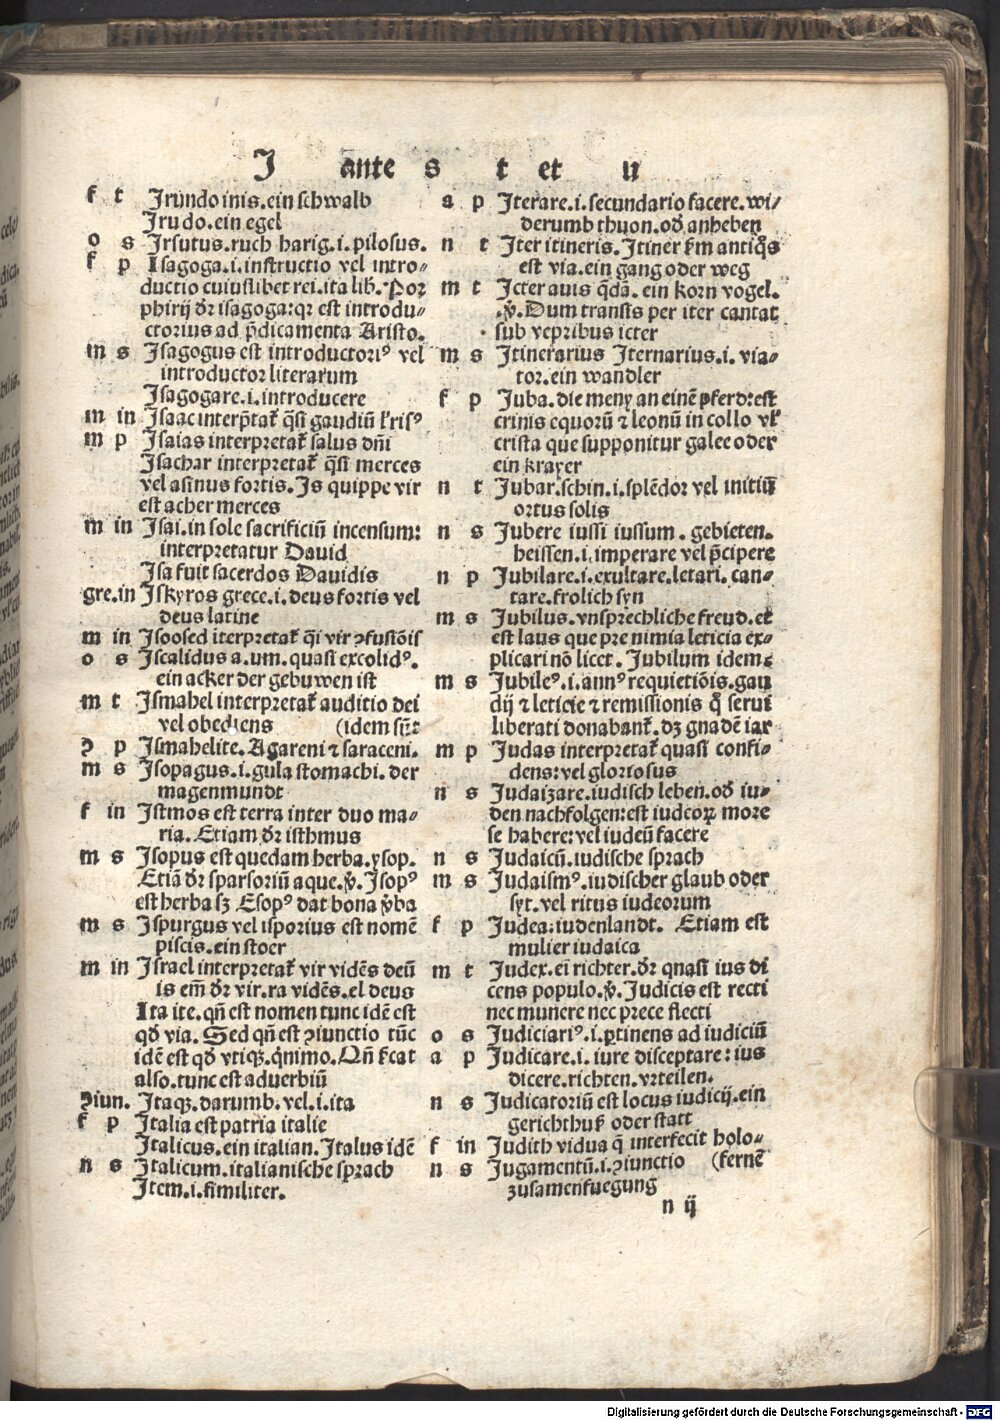 J ante s t et u
f t Jrundo inis.ein schwalb
Jrudo.ein egel
o s Jrsutus.ruch harig.i.pilosus.
f p Jsagoga.i.instructio vel intro⸗
ductio cuiuslibet rei.ita lib̃.Por
phirij dr̃ isagoga:qr est introdu⸗
ctorius ad p̃dicamenta Aristo.
m s Jsagogus est introductoriꝰ vel
introductor literarum
Jsagogare.i.introducere
m in Jsaac interp̃tat̃ q̃si gaudiũ
m p Jsaias interpretat̃ salus dñi
Jsachar interpretat̃ q̃si merces
vel asinus fortis.Js quippe vir
est acher merces
m in Jsai.in sole sacrificiũ incensum:
interpretatur Dauid
Jsa fuit sacerdos Dauidis
gre.in Jskyros grece.i.deus fortis vel
deus latine
m in Jsoosed iterpretat̃ q̃i vir ꝯfusiõis
o s Jscalidus a.um.quasi excolidꝰ.
ein acker der gebuwen ist
m t Jsmahel interpretat̃ auditio dei
vel obediens (idem
ꝯ p Jsmahelite.Agareni ⁊ saraceni.
m s Jsopagus.i.gula stomachi.der
magenmundt
f in Jstmos est terra inter duo ma⸗
ria.Etiam dr̃ isthmus
m s Jsopus est quedam herba.ysop.
Etiã dr̃ sparsoriũ aque.v̉.Jsopꝰ
est herba sꝫ Esopꝰ dat bona v̉ba
m s Jspurgus vel isporius est nomẽ
piscis.ein stoer
m in Jsrael interpretat̃ vir vidẽs deũ
is em̃ dr̃ vir.ra vidẽs.el deus
Jta ite.qñ est nomen tunc idẽ est
qð via.Sed qñ est ꝯiunctio tũc
idẽ est qð vtiqꝫ.q̃nimo.Qñ
also.tunc est aduerbiũ
ꝯiun. Jtaqꝫ.darumb.vel.i.ita
f p Jtalia est patria italie
Jtalicus.ein italian.Jtalus idẽ
n s Jtalicum.italianische sprach
Jtem.i.similiter.
a p Jterare.i.secundario facere.wi⸗
derumb thuon.oð anheben
n t Jter itineris.Jtiner ẜm antiq̃s
est via.ein gang oder weg
m t Jcter auis q̃dã.ein korn vogel.
.v̉.Dum transis per iter cantat
sub vepribus icter
m s Jtinerarius Jternarius.i.via⸗
tor.ein wandler
f p Juba.die meny an einẽ pferd:est
crinis equorũ ⁊ leonũ in collo vl̃
crista que supponitur galee oder
ein krayer
n t Jubar.schin.i.splẽdor vel initiũ
ortus solis
n s Jubere iussi iussum.gebieten.
heissen.i.imperare vel p̃cipere
n p Jubilare.i.exultare.letari.can⸗
tare.frolich syn
m s Jubilus.vnsprechliche freud.et
est laus que pre nimia leticia ex⸗
plicari nõ licet.Jubilum idem:
m s Jubileꝰ.i.annꝰ requietiõis.gau
dij ⁊ leticie ⁊ remissionis q̃ serui
liberati donabant̃.dꝫ gnadẽ iar
m p Judas interpretat̃ quasi confi⸗
dens:vel gloriosus
n s Judaizare.iudisch leben.oð iu⸗
den nachfolgen:est iudeoꝝ more
se habere:vel iudeũ facere
n s Judaicũ.iudische sprach
m s Judaismꝰ.iudischer glaub oder
syt.vel ritus iudeorum
f p Judea:iudenlandt. Etiam est
mulier iudaica
m t Judex.eĩ richter.dr̃ quasi ius di
cens populo.v̉.Judicis est recti
nec munere nec prece flecti
o s Judiciariꝰ.i.ꝑtinens ad iudiciũ
a p Judicare.i.iure disceptare:ius
dicere.richten.vrteilen.
n s Judicatoriũ est locus iudicij.ein
gerichthuß oder statt
f in Judith vidua q̃ interfecit holo⸗
(fernẽ
n s Jugamentũ.i.ꝯiunctio
zusamenfuegung
n ij
Digitalisierung gefördert durch die Deutsche Forschungsgemeinschaft - DFG